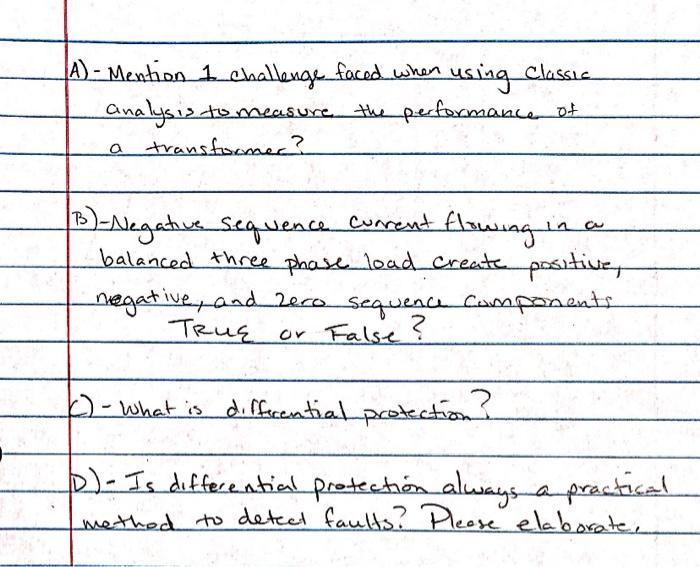 A)- Mention 1 challenge faced when using classic
analysis to measure the performance of
a transformer?
B)-Negative sequence current flowing in a
balanced three phase load create positive,
negative, and zero sequence components
TRUE or False?
C)- What is differential protection?
D)- Is differential protection always a practical
method to detect faults? Please elaborate.